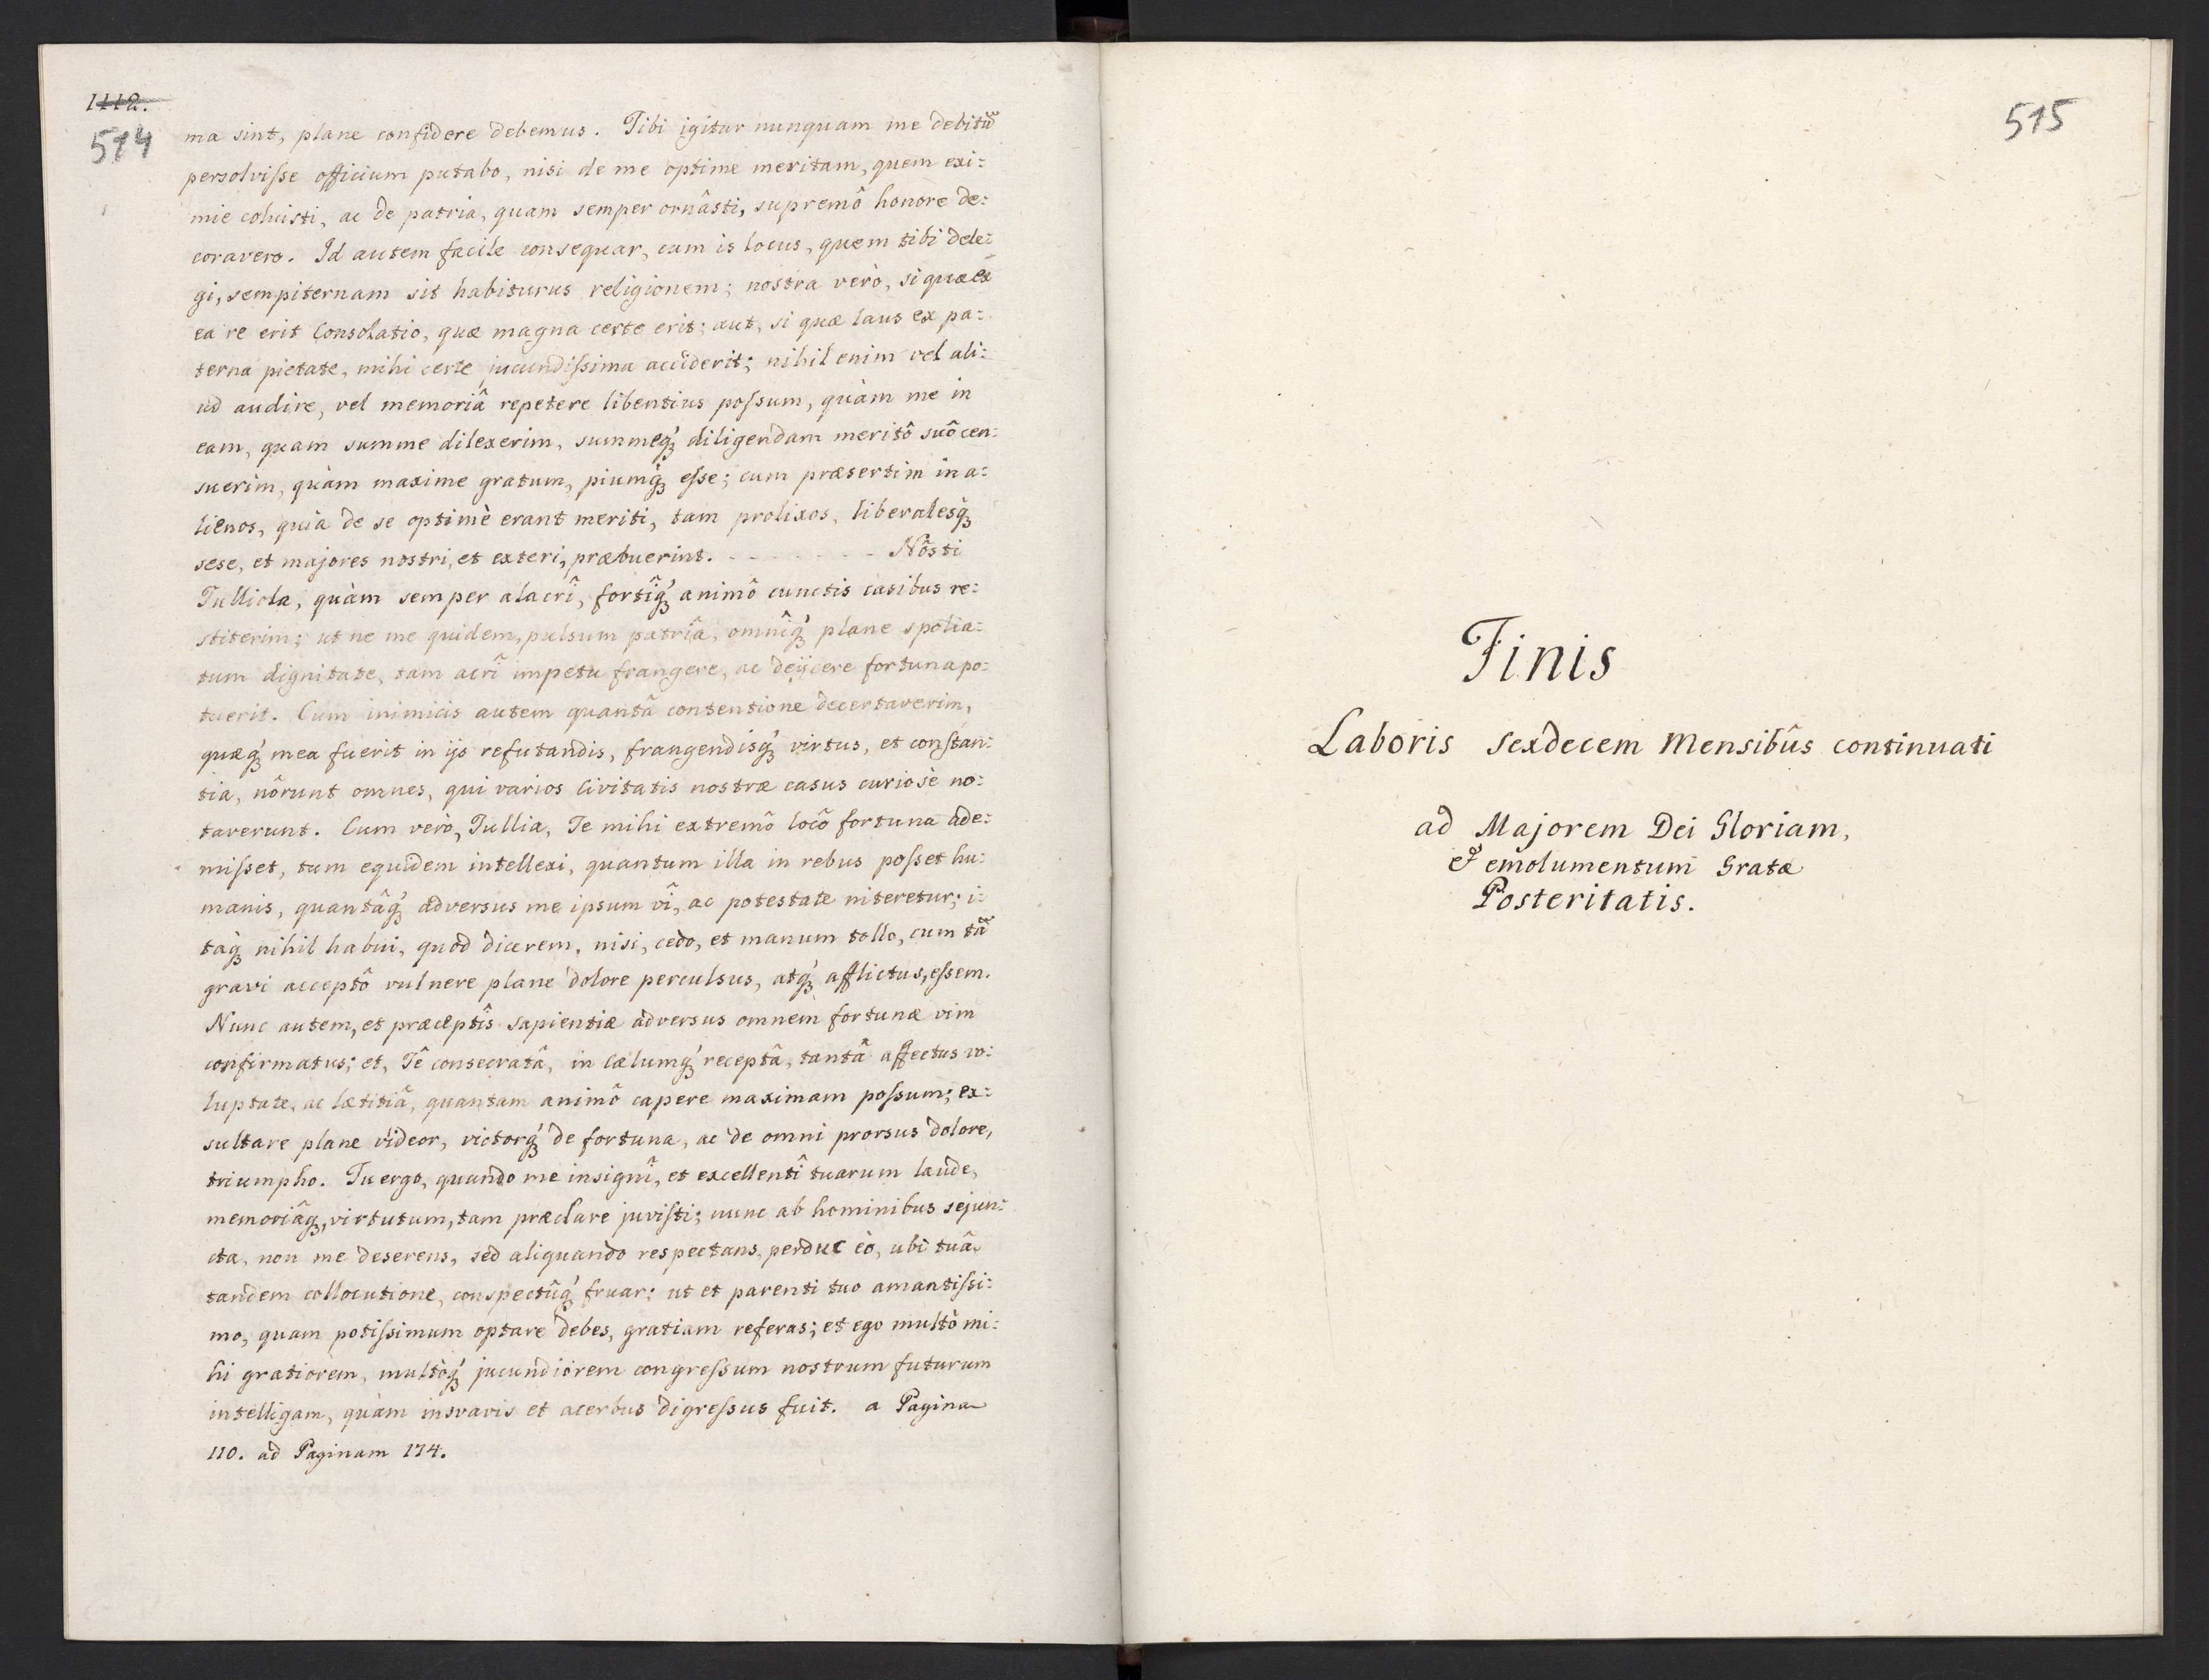 1112.
514
ma sint, plane confidere debemus. Tibi igitur nunquam me debitũ
persolvisse officium putabo, nisi de me optime meritam, quem exi:
mie coluisti, ac de patria, quam semper ornâsti, supremô honore de:
coravero. Id autem facile consequar, cum is locus, quem tibi dele:
gi, sempiternam sit habiturus religionem; nostra verò, si qua ex
ea re erit Consolatio, quæ magna certe erit; aut, si quæ laus ex pa:
terna pietate, mihi certe jucundissima acciderit; nihil enim vel ali:
ud audire, vel memoriâ repetere libentius possum, quàm me in
eam, quam summe dilexerim, summeq́ꝫ diligendam meritô suô cen:
suerim, quàm maxime gratum, piumq́ꝫ esse; cum præsertim in a:
lienos, quia de se optimè erant meriti, tam prolixos, liberalesq́ꝫ
sese, et majores nostri, et exteri, præbuerint. - - - - - - - - Nôsti
Tulliola, quàm semper alacrî, fortîq́ꝫ animô cunctis casibus re:
stiterim; ut ne me quidem, pulsum patriâ, omnîq́ꝫ plane spolia:
tum dignitate, tam acrî impetu frangere, ac deijcere fortuna po:
tuerit. Cum inimicis autem quantâ contentione decertaverim,
quæq́ꝫ mea fuerit in ijs refutandis, frangendisq́ꝫ virtus, et constan:
tia, nôrunt omnes, qui varios Civitatis nostræ casus curiosè no:
taverunt. Cum verò, Tullia, Te mihi extremô locô fortuna ade:
misset, tum equidem intellexi, quantum illa in rebus posset hu:
manis, quantâq́ꝫ adversus me ipsum vî, ac potestate niteretur; i:
taq́ꝫ nihil habui, quod dicerem, nisi, cedo, et manum tollo, cum tã
gravi acceptô vulnere plane dolore perculsus, atq́ꝫ afflictus, essem.
Nunc autem, et præceptîs sapientiæ adversus omnem fortunæ vim
confirmatus; et, Tê consecratâ, in Cælumq́ꝫ receptâ, tantâ affectus vo:
luptate, ac lætitiâ, quantam animô capere maximam possum; ex:
sultare plane videor, victorq́ꝫ de fortuna, ac de omni prorsus dolore,
triumpho. Tu ergo, quando me insignî, et excellentî tuarum laude,
memoriâq́ꝫ, virtutum, tam præclare juvisti; nunc ab hominibus sejun:
cta, non me deserens, sed aliquando respectans, perduc eò, ubi tuâ
tandem collocutione, conspectûq́ꝫ fruar; ut et parenti tuo amantissi:
mo, quam potissimum optare debes, gratiam referas; et ego multò mi:
hi gratiorem, multòq́ꝫ jucundiorem congressum nostrum futurum
intelligam, quàm insvavis et acerbus digressus fuit. a Pagina
110. ad Paginam 174.
515
Finis
Laboris sexdecem Mensibûs continuati
ad Majorem Dei Gloriam,
& emolumentum Gratæ
Posteritatis.